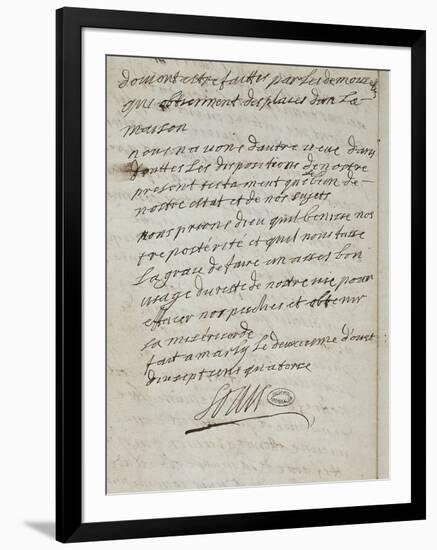 doivent estre faittes par les demoiselles
qui obtiennent des places dans la
maison
nous navons dautre veue dans
touttes les dispositions de nostre
present testament que le bien de
nostre estat et de nos sujets
nous prions dieu quil benisse nos
tre postérité et quil nous fasse
la grace de faire un asses bon
usage du reste de nostre vie pour
effacer nos pechés et obtenir
sa miséricorde
fait a marly le deuxieme daoust
dix sept cent quatorse
Louis